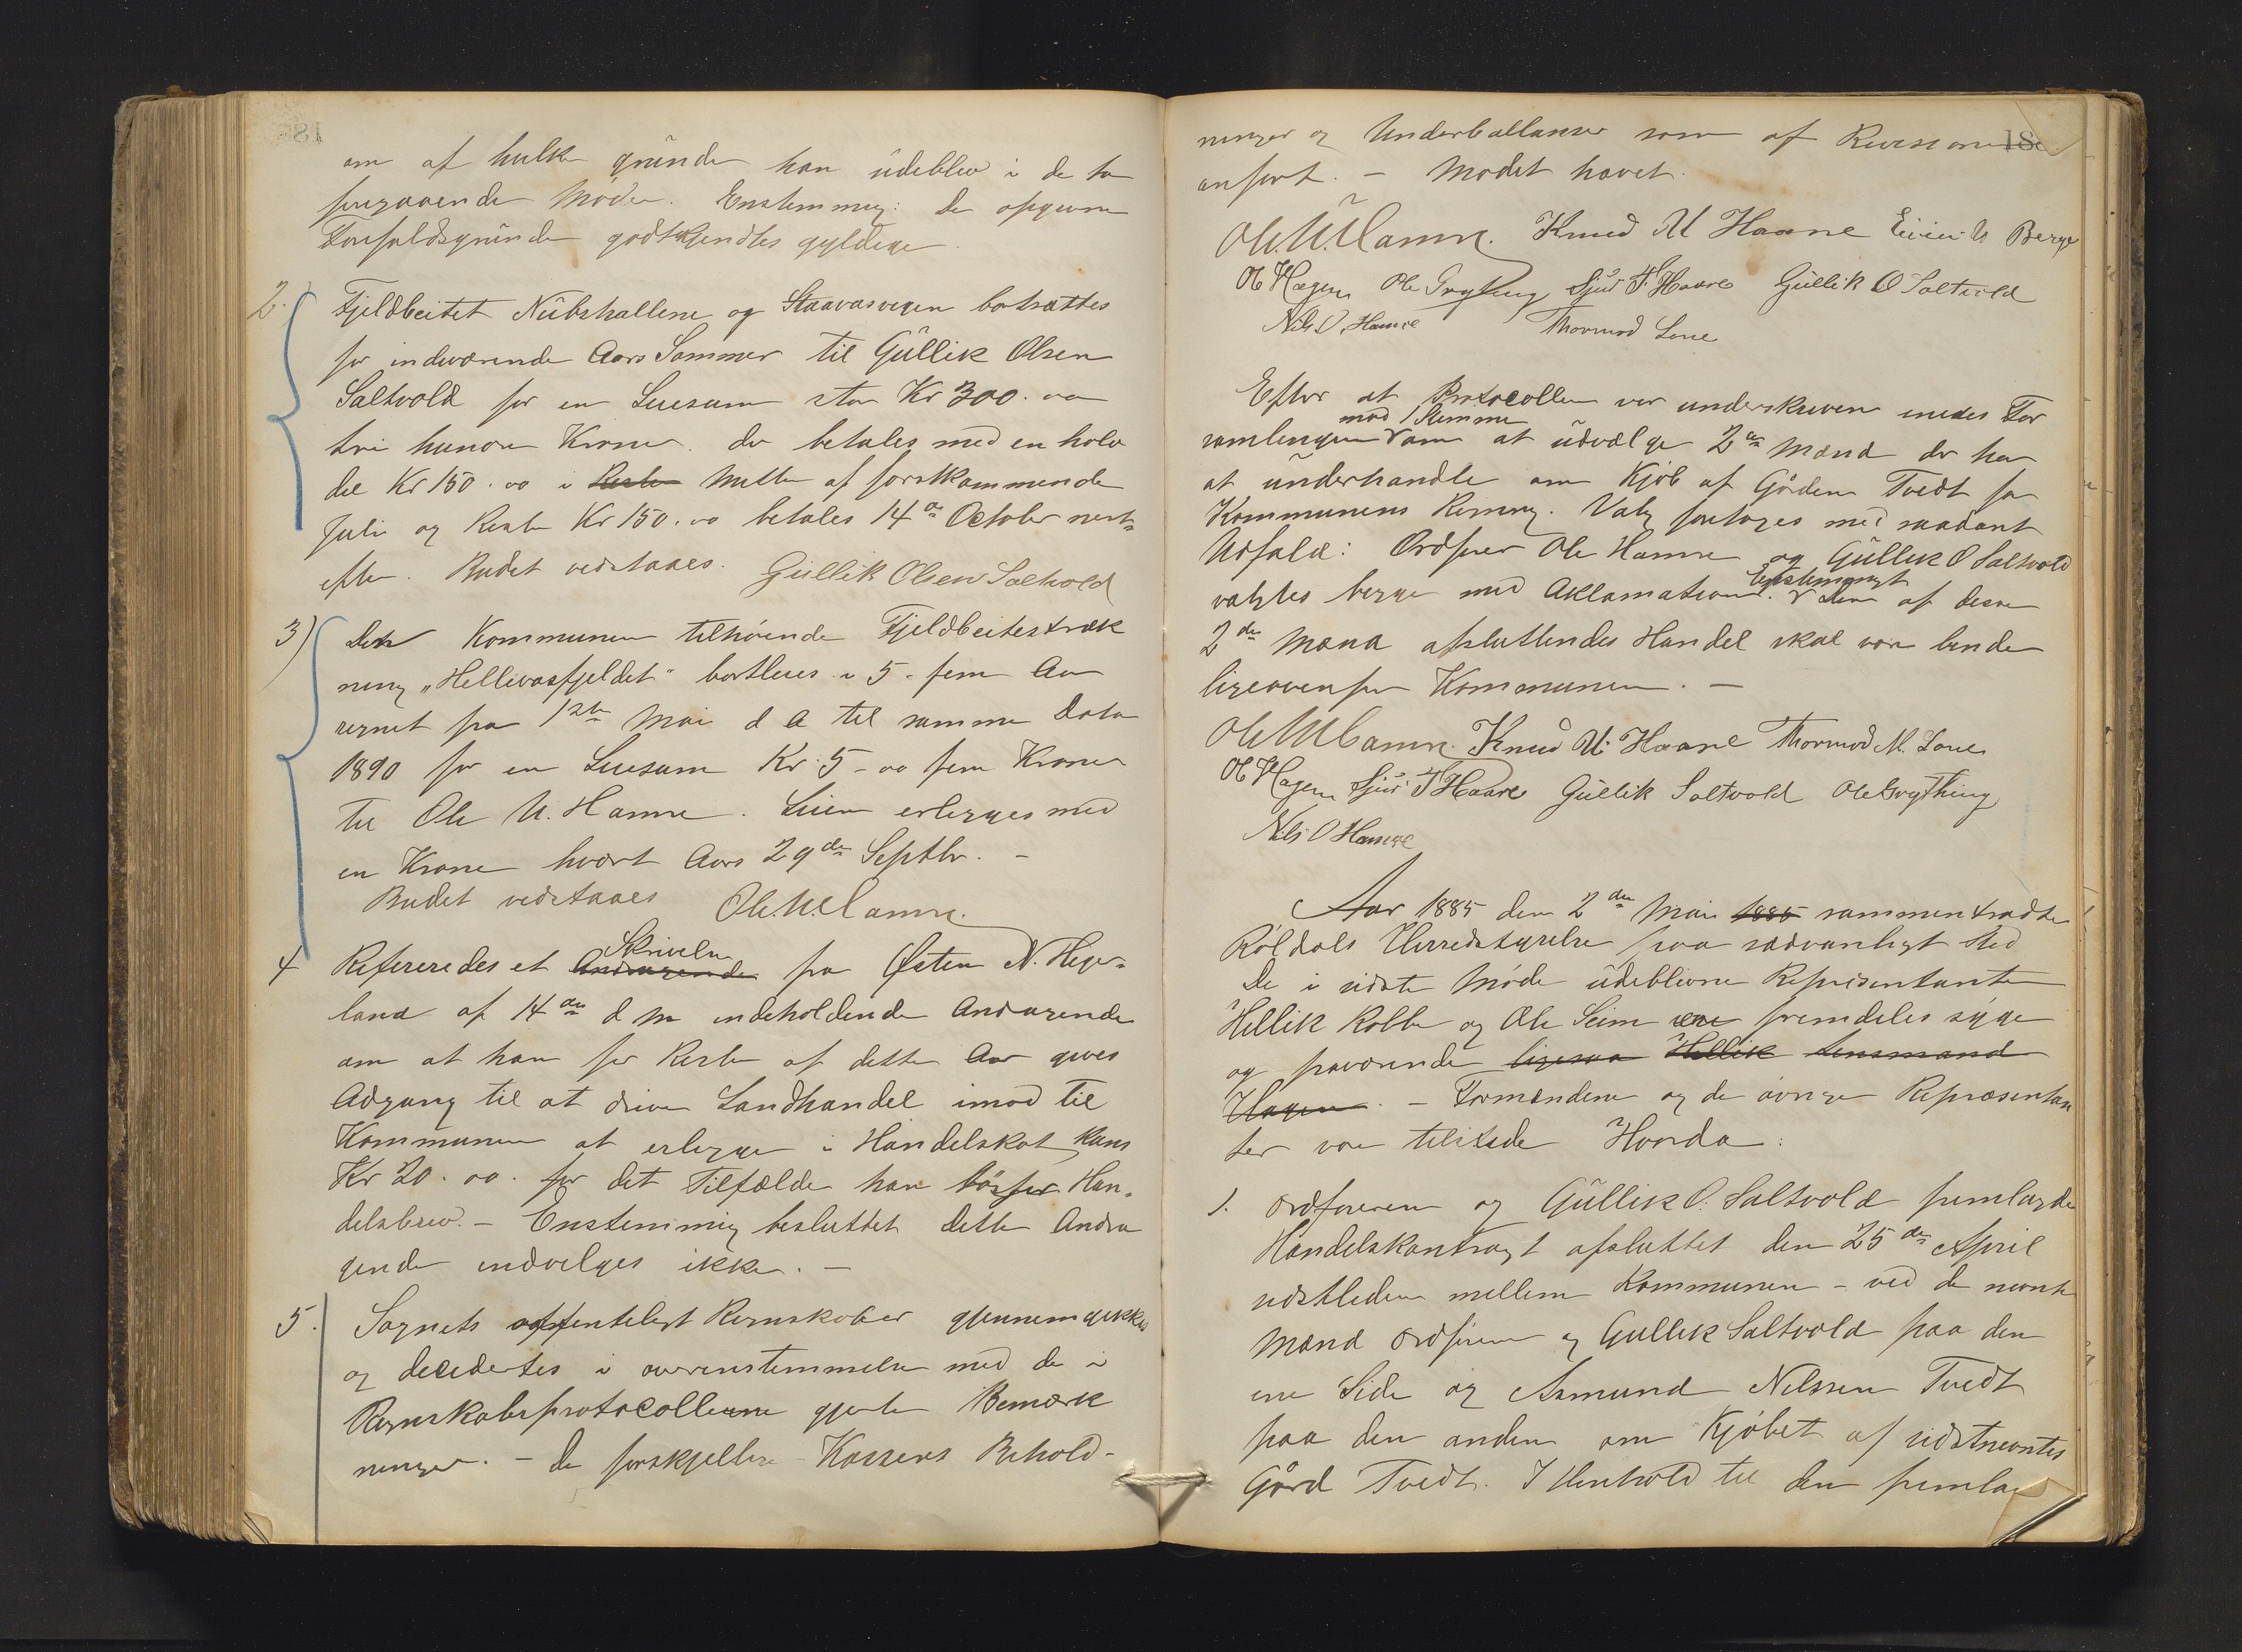 om af hvilke grunde han udeblev i de to
foregaaende Møder. Enstemmig: De opgivne
Forfaldsgrunde godtkjendtes gyldige.
2. Fjeldbeitet Nübshallene og Staavasvegen bortsattes
for indeværende Aars Sommer til Güllik Olsen
Saltvold for en Leiesum stor Kr 300.00
tre hundre Kroner. der betales med en halv
del Kr 150.00 i Resten Midten af førstkommende
Juli og Resten Kr 150.00 betales 14de October nest-
efter. Budet vedstaaes. Güllik Olsen Saltvold
3) Den Kommunen tilhørende Fjeldbeitestræk
ning „Hellevasfjeldet" bortleies i 5 - fem Aar
regnet fra 1ste Mai d A til samme Dato
1890 for en Leiesum Kr. 5-00 fem Kroner
til Ole N. Hamre. Leien erlegges med
en Krone hvert Aars 29de Septbr. -
Budet vedstaaes Ole N. Hamre.
Skrivelse
4 Refereredes et Andragende fra Østen N. Heger-
land af 14de d M indeholdende Andragende
om at han for Resten af dette Aar gives
Adgang til at drive Landhandel imod til
Kommunen at erlegge i Handelskat kuns
Kr 20.00. for det Tilfælde han løser Han-
delsbrev. - Enstemmig besluttet Dette Andra
gende indvilges ikke. -
5. Sognets offentligt Regnskaber gjennemgikkes
og decidertes i overenstemmelse med de i
Regnskabsprotocollerne gjorte Bemærk
ninger. - De forskjellige Kassers Behold-
18
ninger og Underballanser som af Revisionen
anført. - Mødet hævet.
Ole N. Hamre. Knud N Haare Berge
O Hagen Ole Grytting Sjur T. Haare Güllik O Saltvold
Nils O. Hamre Thormod Lone
Efter at Protocollen var underskreven enedes For
mod 1 Stemme
samlingen om at udvælge 2de Mænd der har
at underhandle om Kjøb af Gården Tvedt for
Kommunens Regning. Valg foretoges med saadant
Udfald: Ordfører Ole Hamre og Güllik O Saltvold
Enstemmigt
valgtes begge med Aklamation. Den af disse
2de Mænd afsluttendes Handel skal være binde
ligeovenfor Kommunen. -
Ole N Hamre. Knud N. Haare Thormod N. Lone
O Hagen Sjur T Haare Güllik Saltvold Ole Grytting
Nils O Hamre
Aar 1885 den 2den Mai 1885 sammentraadte
Röldals Herredstyrelse paa sædvanligt sted
De i sidste Møde udeblevne Repræsentanter
Hellik Rabbe og Ole Seim ere fremdeles syge
og fraværende ligesaa Hellik Lensmand
Hagen. - Formændene og de øvrige Repræsentan
ter vare tilstede Hvorda:
1. Ordføreren og Güllik O. Saltvold fremlagde
Handelskontragt afsluttet den 25de April
sidstleden mellem Kommunen - ved de nevnte
Mænd Ordføreren og Gullik Saltvold paa den
ene Side og Asmund Nilssen Tvedt
paa den anden om Kjøbet af sidstnevntes
Gård Tvedt. I Henhold til den fremlag